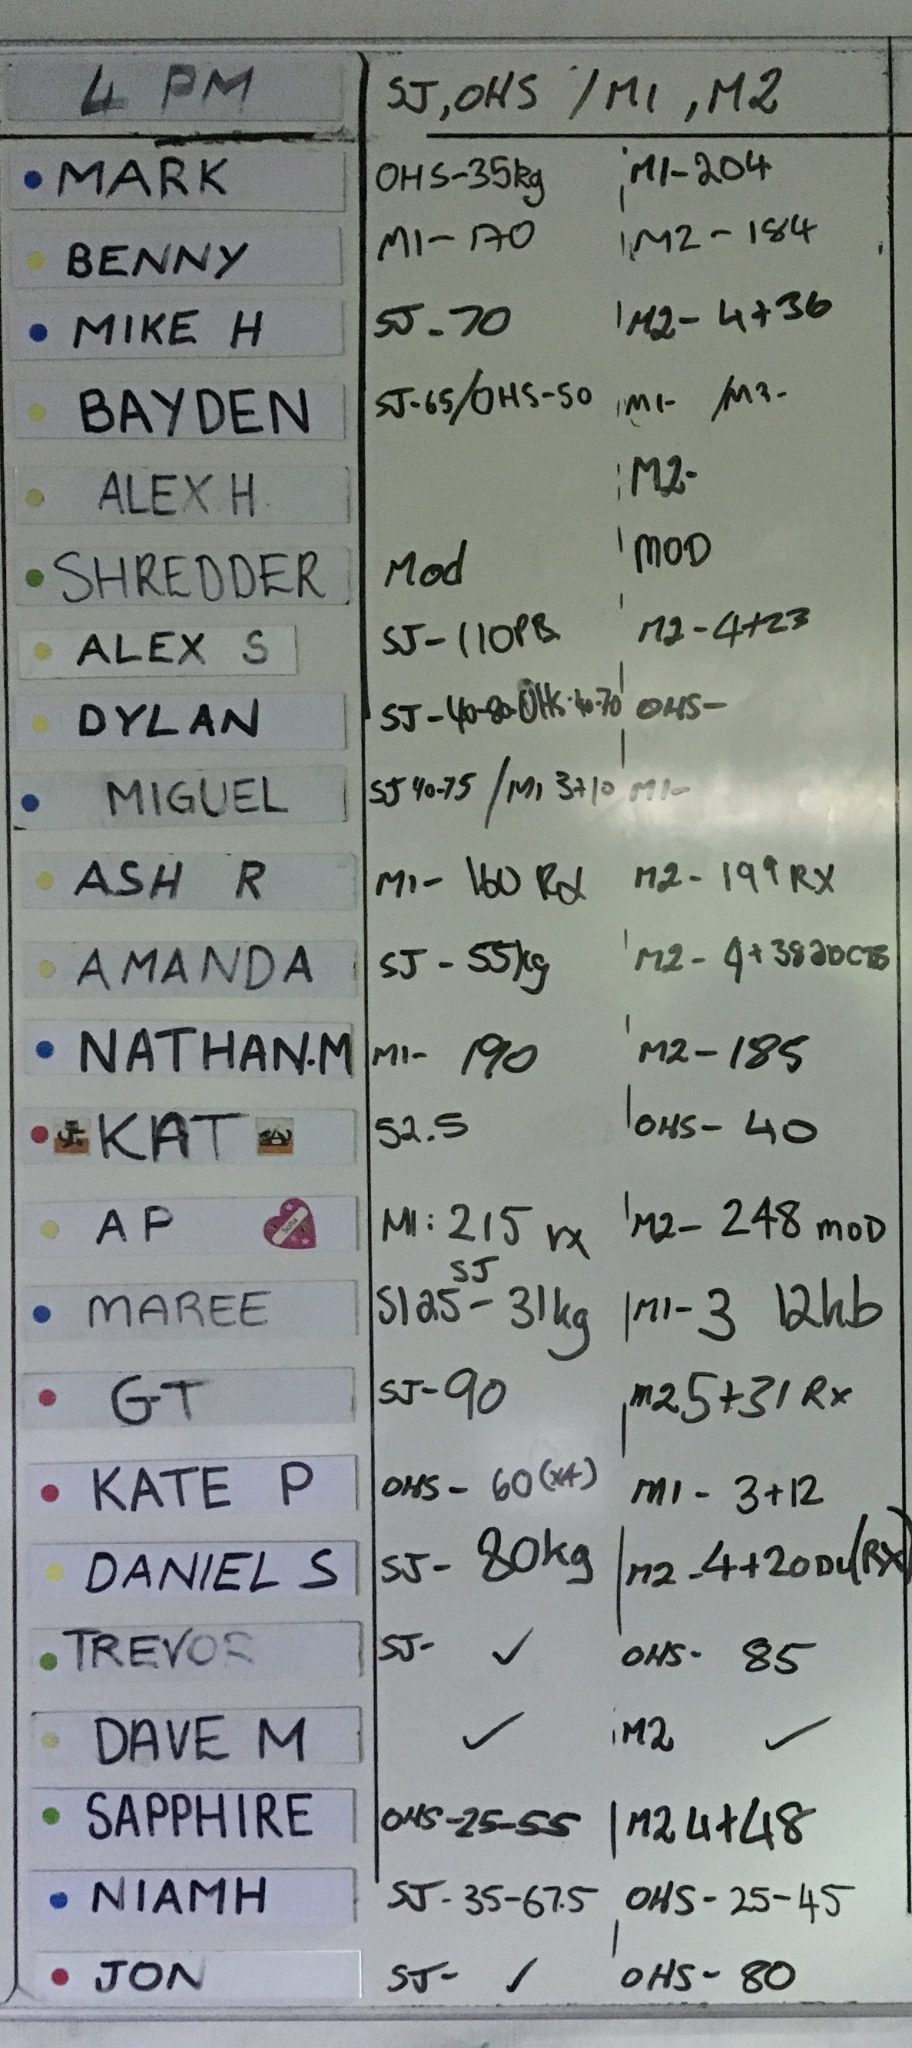 4 PM SJ, OHS / M1, M2
MARK OHS-35kg M1-204
BENNY M1-170 M2-184
MIKE H SJ-70 M2-4+36
BAYDEN SJ-65/OHS-50 M1- /M2-
ALEX H. M2-
SHREDDER Mod MOD
ALEX S SJ-110PB M2-4+23
DYLAN SJ-40-80-OHS-40-70 OHS-
MIGUEL SJ 40-75 /M1 3+10 M1-
ASH R M1-160 Rx M2-199 RX
AMANDA SJ-55kg M2-4+38
NATHAN.M M1-190 M2-185
KAT 52.5 OHS-40
AP M1: 215 rx M2-248 MOD
SJ
MAREE 31kg M1-3 12hb
GT SJ-90 M2 5+31 Rx
KATE P OHS-60(x4) M1-3+12
DANIEL S SJ-80kg M2-4+20DU(RX)
TREVOR SJ- ✓ OHS-85
DAVE M ✓ M2 ✓
SAPPHIRE OHS-25-55 M2 4+48
NIAMH SJ-35-67.5 OHS-25-45
JON SJ- ✓ OHS-80